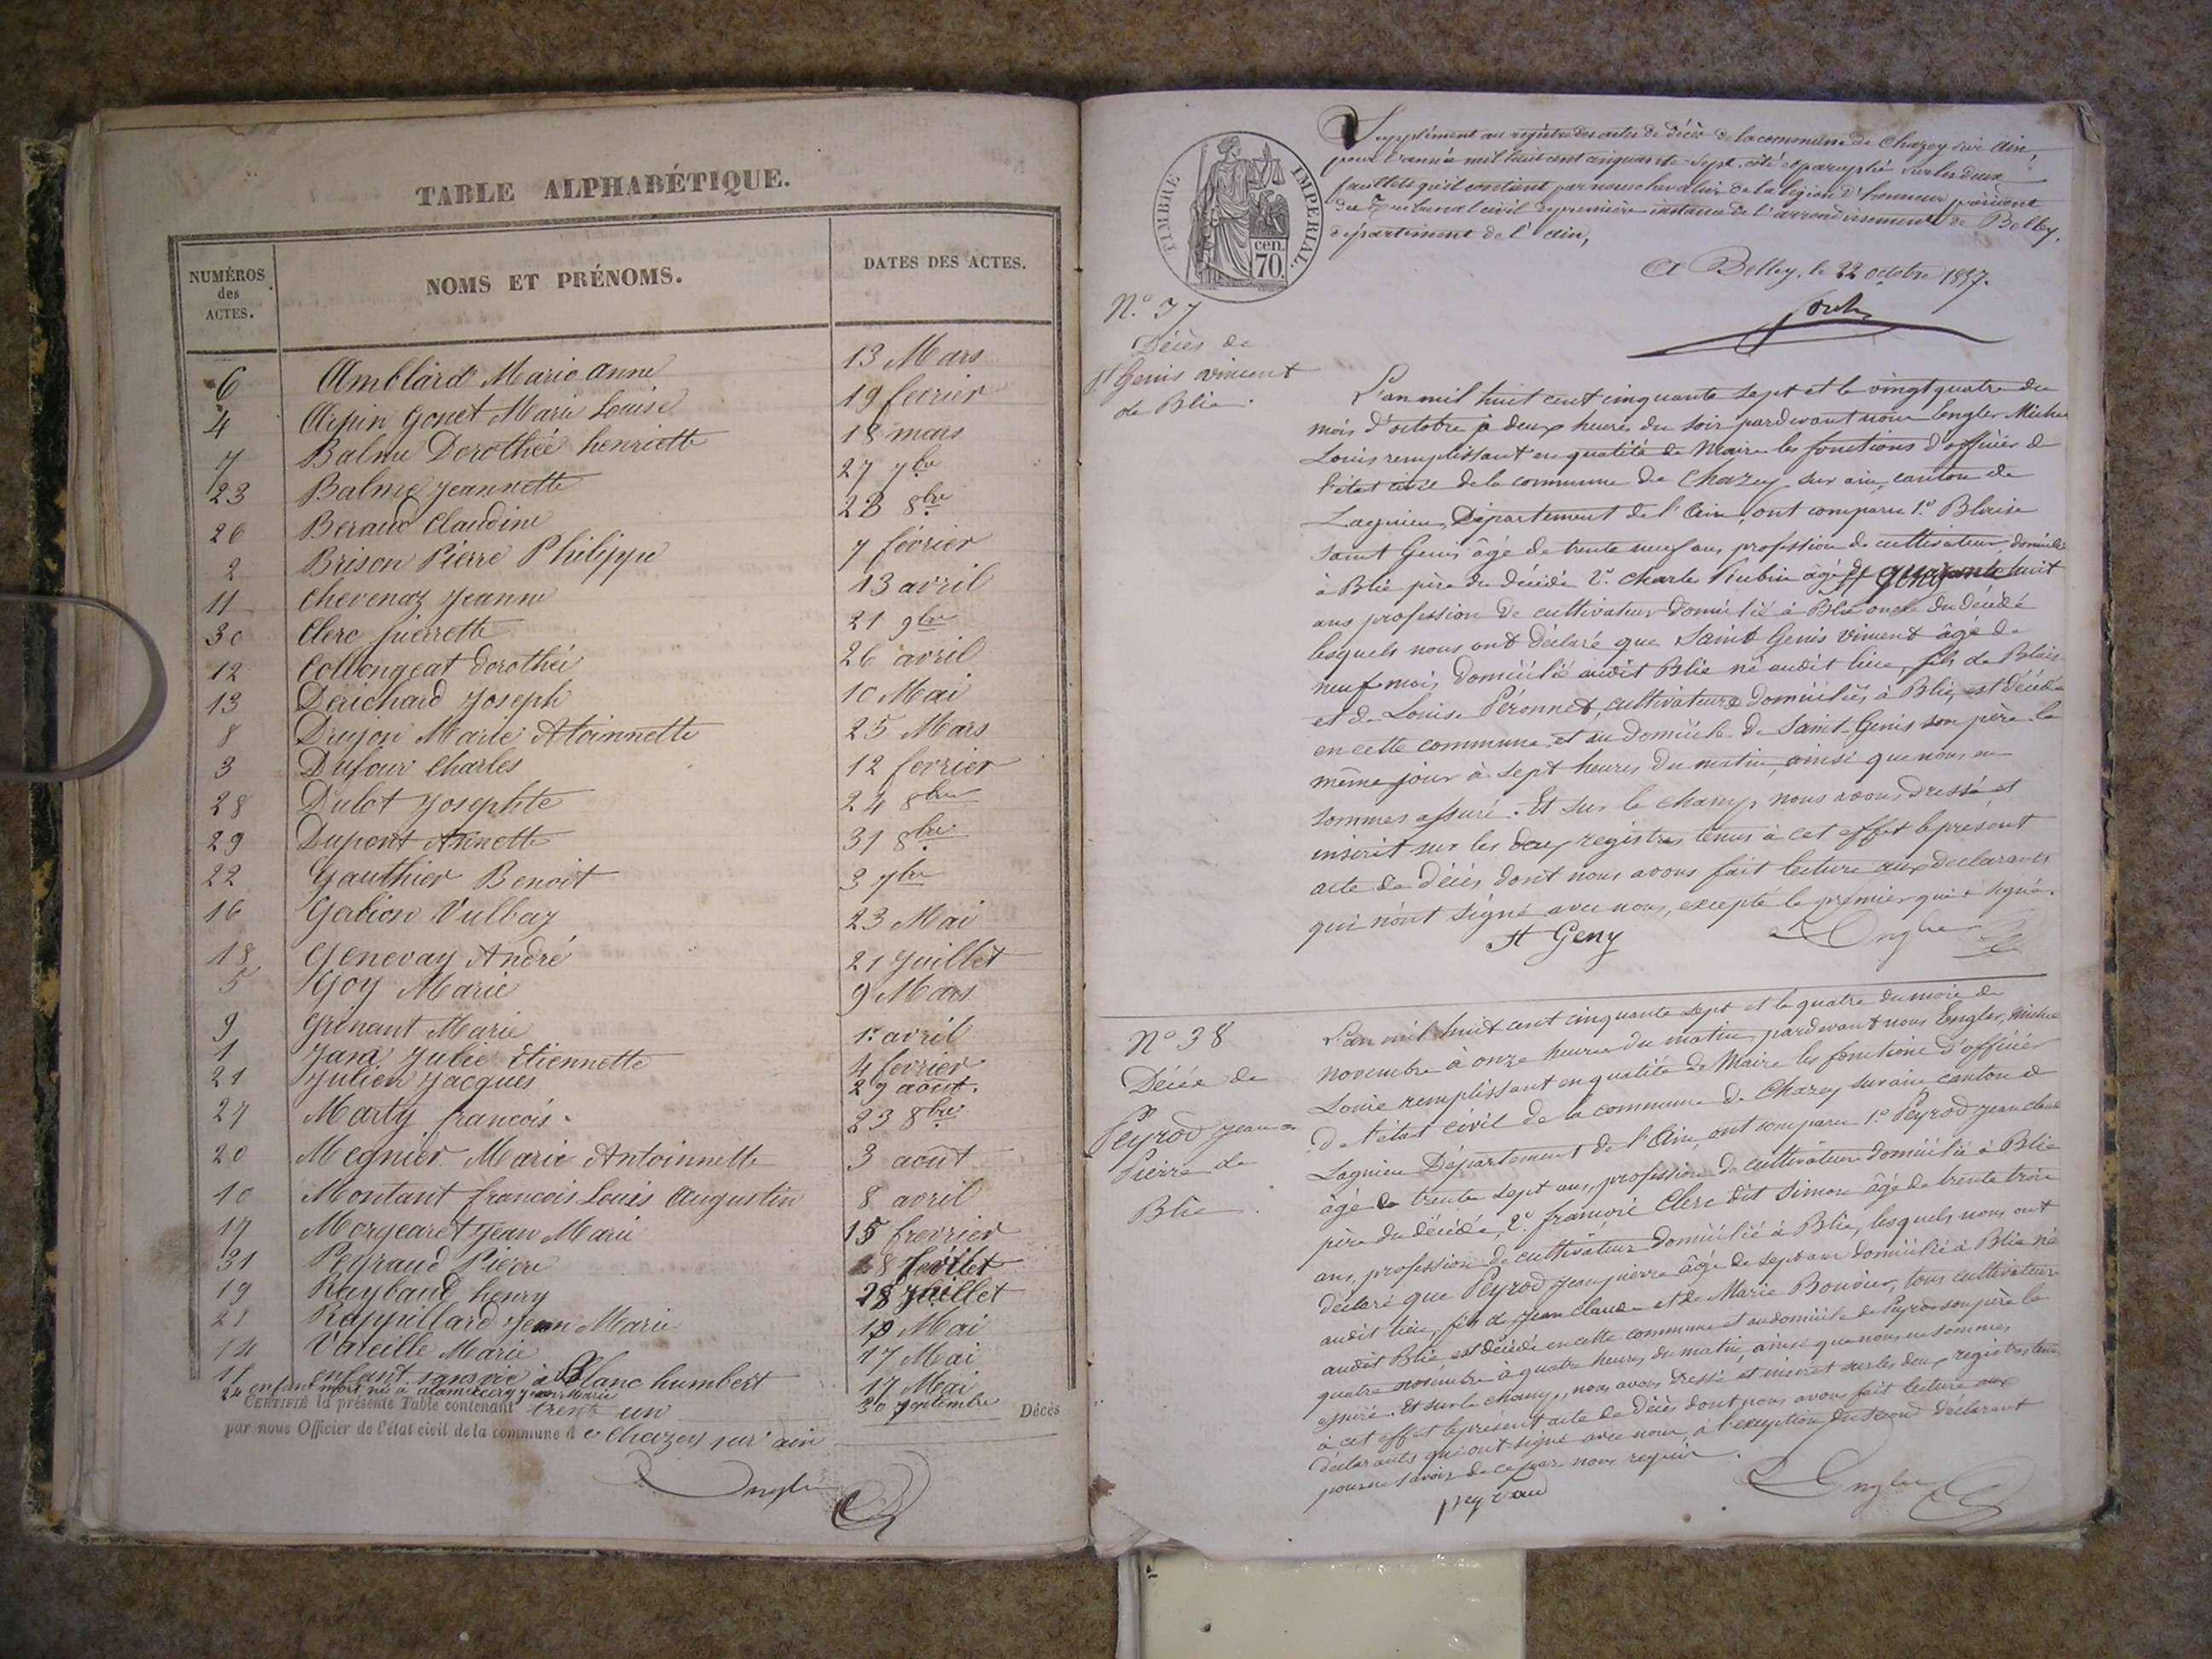 TABLE ALPHABÉTIQUE.
NUMÉROS des ACTES.
NOMS ET PRÉNOMS.
DATES DES ACTES.
6 Amblard Marie Anne 13 Mars
4 Arpin Gonet Marie Louise 19 fevrier
7 Balme Dorothée henriette 18 mars
23 Balme Jeannette 27 7bre
26 Beraud Claudine 23 8bre
2 Brison Pierre Philippe 7 février
11 Chevenaz Jeanne 13 avril
30 Clerc pierrette 21 9bre
12 Collongeat dorothée 26 avril
13 Derichard Joseph 10 Mai
8 Drujon Marie Atoinnette 25 Mars
3 Dufour Charles 12 fevrier
28 Dulot Josephte 24 8bre
29 Dupont Annette 31 8bre
22 Gauthier Benoit 3 7bre
16 Gabion Vulbaz 23 Mai
18 Genevay André 21 Juillet
5 Goy Marie 9 Mars
9 Grenant Marie 1er avril
1 Jara Julie Etiennette 4 fevrier
21 Julien Jacques 29 août.
27 Marty francois. 23 8bre
20 Megnier Marie Antoinnette 3 août
10 Montant francois Louis Augustin 8 avril
17 Morgearet Jean Marie 15
31 Pegraud Pierre
19 Raybaud henry 28 Juillet
Rappillard Jean Marie 10 Mai
14 Vareille Marie 17 Mai
enfant sans vie à Blanc humbert 17 Mai
24 enfant mort né à Jean Marie 30 septembre
CERTIFIÉ la présente Table contenant trente un Décès
par nous Officier de l'état civil de la commune de Chazey sur ain
Engler
TIMBRE IMPÉRIAL.
cen. 70.
Supplément au registre des actes de décès de la commune de Chazey sur Ain,
pour l'année mil huit cent cinquante-sept, coté et paraphé sur les deux
feuillets qu'il contient par nous chevalier de la légion d'honneur président
du Tribunal civil de première instance de l'arrondissement de Belley,
département de l'ain,
A Belley, le 22 octobre 1857.
N.o 37
Décès de
St Genis vincent
de Blie.
L'an mil huit cent cinquante sept et le vingt quatre du
mois d'octobre à deux heures du soir pardevant nous Engler Michel
Louis remplissant en qualité de Maire les fonctions d'officier de
l'état civil de la commune de Chazey sur ain, canton de
Lagnieu, Département de l'Ain, ont comparu 1.o Blaise
saint Genis âgé de trente neuf ans, profession de cultivateur domicilié
à Blie père du décédé 2.o Charles âgé de quarante huit
ans profession de cultivateur domicilié à Blie oncle du décédé
lesquels nous ont déclaré que Saint Genis vincent âgé de
neuf mois, domicilié audit Blie né audit lieu, fils de Blaise
et de Louise Péronnet, cultivateurs domiciliés à Blie, est décédé
en cette commune et au domicile de Saint-Genis son père le
même jour à sept heures du matin, ainsi que nous en
sommes assuré. Et sur le champ nous avons dressé et
inscrit sur les deux registres tenus à cet effet le présent
acte de décès dont nous avons fait lecture aux déclarants
qui n'ont signé avec nous, excepté le premier qui a signé.
St Geny
Engler
No 38
Décès de
Peyrod Jean
Pierre de
Blie.
L'an mil huit cent cinquante sept et le quatre du mois de
novembre à onze heures du matin, pardevant nous Engler, Michel
Louis remplissant en qualité de Maire les fonctions d'officier
de l'état civil de la commune de Chazey sur ain canton de
Lagnieu Département de l'Ain, ont comparu 1.o Peyrod Jean claude
âgé de trente sept ans, profession de cultivateur domicilié à Blie
père du décédé, 2.o françois Clerc dit Simon âgé de trente trois
ans, profession de cultivateur domicilié à Blie, lesquels nous ont
déclaré que Peyrod Jean pierre âgé de sept ans domicilié à Blie né
audit lieu, fils de Jean claude et de Marie Bouvier, tous cultivateurs
audit Blie, est décédé en cette commune et au domicile de Peyrod son père le
quatre novembre à quatre heures du matin, ainsi que nous en sommes
assuré. Et sur le champ, nous avons dressé et inscrit sur les deux registres tenus
à cet effet le présent acte de décès dont nous avons fait lecture aux
déclarants qui ont signé avec nous, à l'exception du second déclarant
pour ne savoir de ce par nous requis.
peyraud
Engler